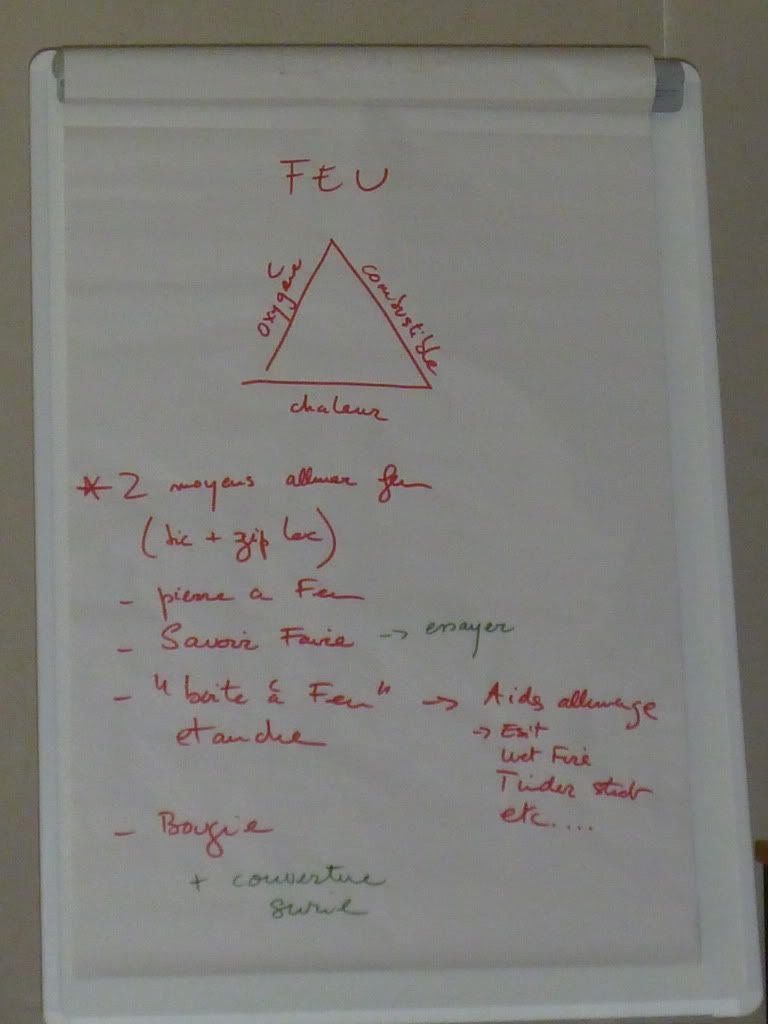 FEU
oxygène
combustible
chaleur
* 2 moyens allumer feu
(bic + zip loc)
- pierre a Feu
- Savoir Faire -> essayer
- "boite à Feu" -> Aides allumage
etanche
-> Esit
Wet Fire
Tinder stick
etc....
- Bougie
+ couverture
survie